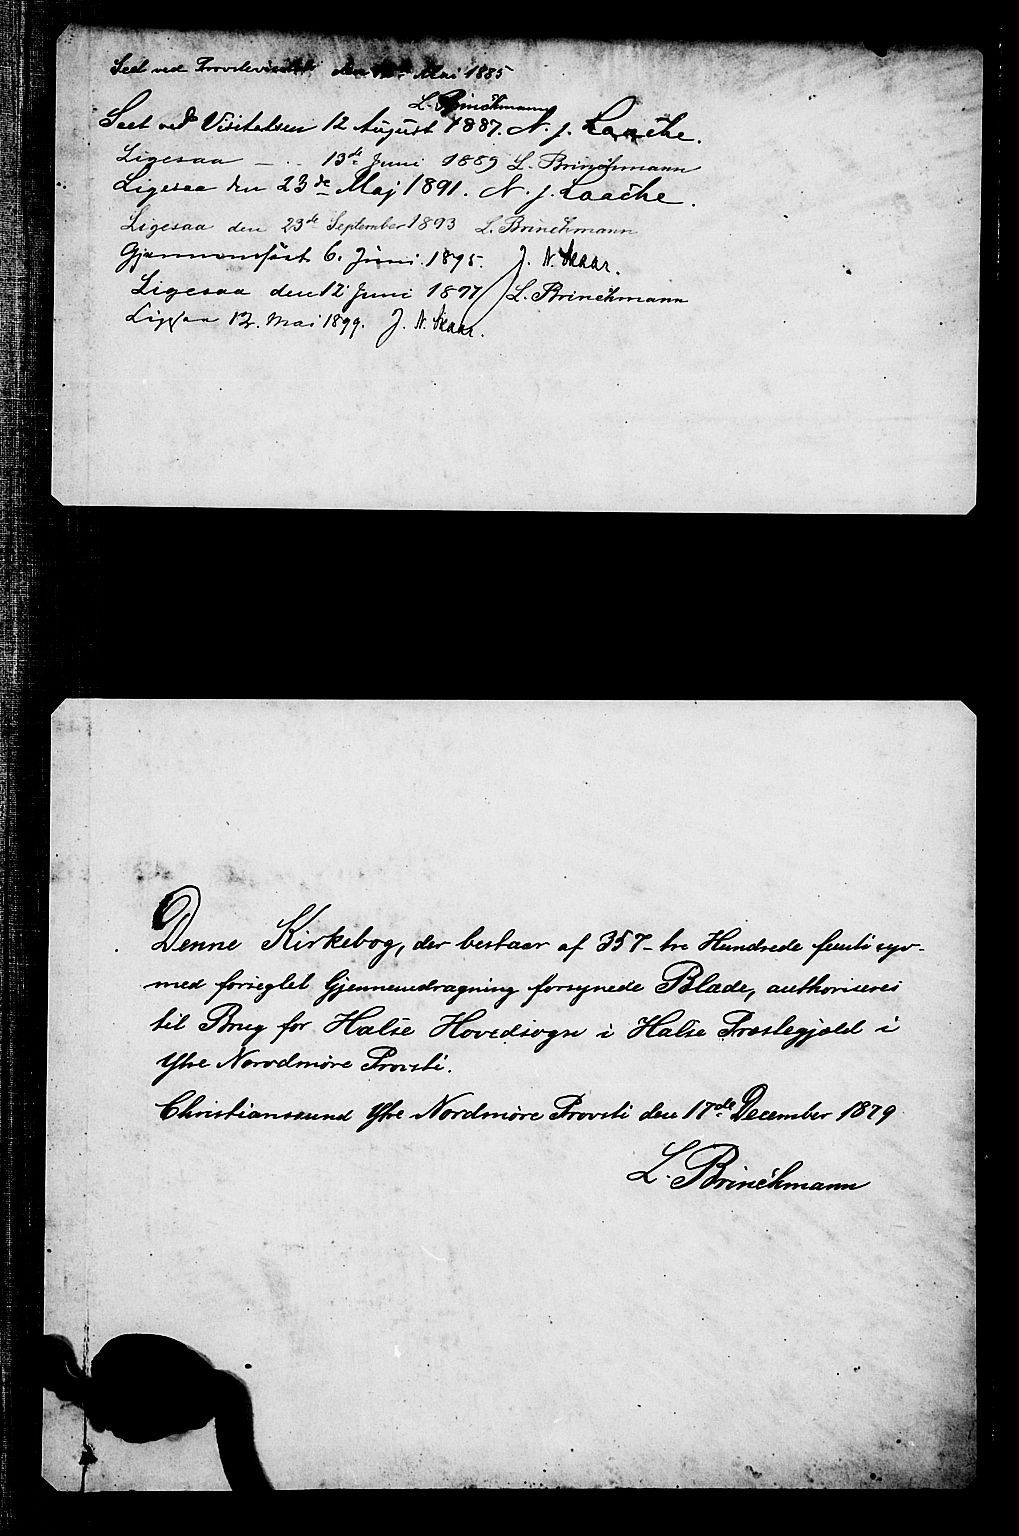 Seet ved Provstevisitats den Mai 1885
L. Brinchmann
Seet ved Visitatsen 12 August 1887. N. J. Laache.
Ligesaa — .. 13de Juni 1889 L. Brinchmann
Ligesaa den 23de Maj 1891. N. J. Laache.
Ligesaa den 23de September 1893 L. Brinchmann
Gjennemseet 6. Juni 1895. J. N. Skaar.
Ligesaa den 12 Juni 1897 / L. Brinchmann
Ligesaa 12. Mai 1899. J. N. Skaar.
Denne Kirkebog, der bestaar af 357 - tre Hundrede femti syv -
med forseglet Gjennemdragning forsynede Blade, authoriseres
til Brug for Halse Hovedsogn i Halse Præstegjæld i
Ytre Nordmøre Provsti.
Christianssund Ytre Nordmøre Provsti den 17de December 1879
L. Brinchmann